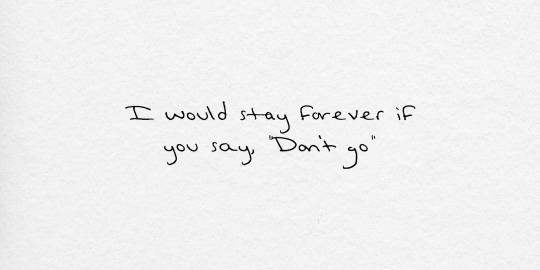 I would stay forever if
you say, "Don't go"